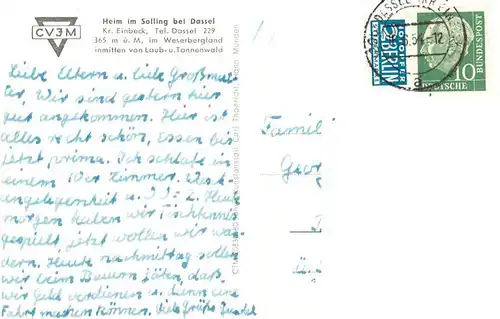 CVJM
Heim im Solling bei Dassel
Kr. Einbeck, Tel. Dassel 229
365 m ü. M, im Weserbergland
inmitten von Laub- u. Tannenwald
Liebe Eltern u. liebe Großmut-
ter, Wir sind gestern hier
gut angekommen. Hier ist
alles recht schön, Essen bis
jetzt prima. Ich schlafe in
einem 10er Zimmer.
angelegenheit u. Heute
morgen haben wir Tischtennis
gespielt jetzt wollen wir wan-
dern. Heute nachmittag sollen
wir beim Bauern jäten, daß
wir Geld verdienen u. dann eine
Fahrt machen können. Viele Grüße
Famili
Geor
NOTOPFER
BERLIN
2
DEUTSCHE BUNDESPOST
10